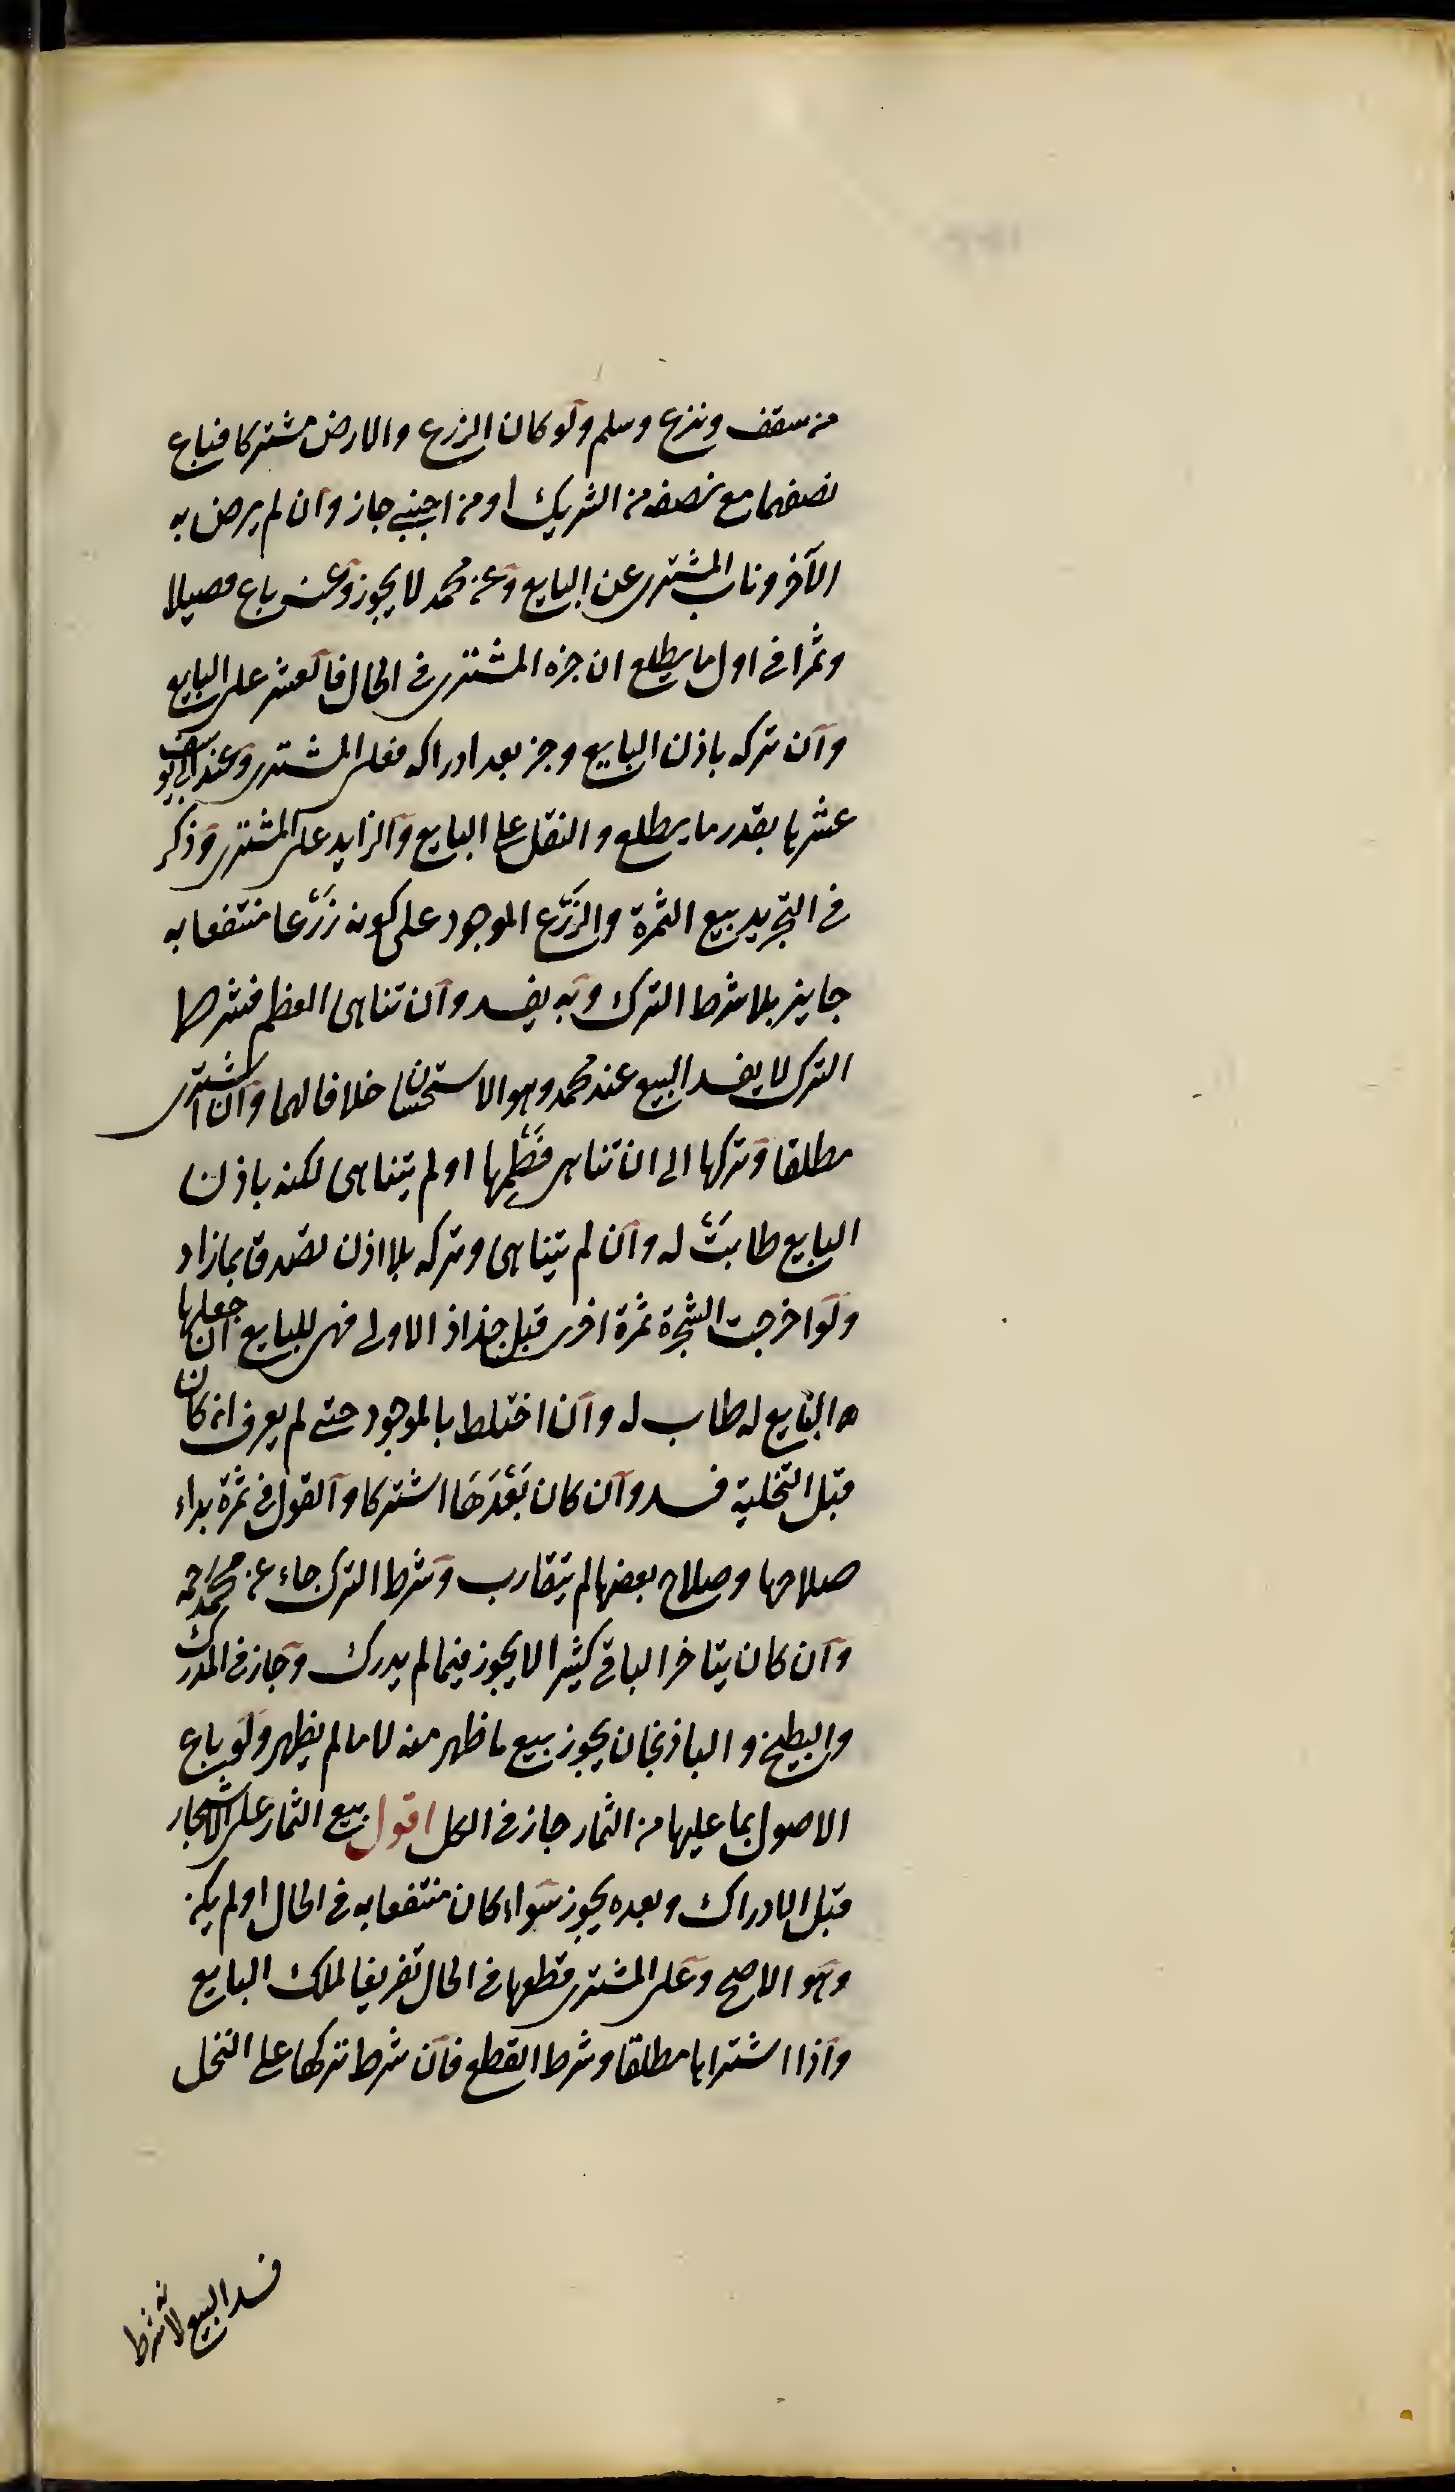 من سقف ونزع وسلم ولو كان الزرع والارض مشتركا فباع
نصفهما مع نصفه من الشريك او من اجنبي جاز وان لم يرض به
الآخر وناب المشتري عن البايع وعن محمد لا يجوز وعن باع فصيلا
وثمرا في اول ما يطلع ان جزه المشتري في الحال فالعشر على البايع
وان تركه باذن البايع وجز بعد ادراكه فعلى المشتري وعند ابي يوسف
عشرها بقدر ما يطلع و النقل على البايع والزايد على المشتري وذكر
في التجريد بيع الثمرة والزرع الموجود على كونه زرعا منتفعا به
جايز بلا شرط الترك وبه يفسد وان تناهى العظم فشرط
الترك لا يفسد البيع عند محمد وهو الاستحسان خلافا لهما وان اشترى
مطلقا وتركها الى ان تناهى عظمها او لم يتناهى لكنه باذن
البايع طابت له وان لم يتناهى وتركه بلا اذن تصدق بما زاد
ولو اخرجت الشجرة ثمرة اخرى قبل جذاذ الاولى فهي للبايع ان جعلها
البايع له طاب له وان اختلط بالموجود حتى لم يعرف ان كان
قبل التخلية فسد وان كان بعدها اشتركا والقول في ثمرة بداء
صلاحها وصلاح بعضها لم يتقارب وشرط الترك جاء عن محمد رحمه
وان كان يتاخر الباقي كثيرا لا يجوز فيما لم يدرك وجاز في المدرك
والبطيخ و الباذنجان يجوز بيع ما ظهر منه لا ما لم يظهر ولو باع
الاصول بما عليها من الثمار جاز في الكل اقول بيع الثمار على الاشجار
قبل الادراك وبعده يجوز سواء كان منتفعا به في الحال او لم يكن
وهو الاصح وعلى المشتري قطعها في الحال تفريغا لملك البايع
واذا اشتراها مطلقا وشرط القطع فان شرط تركها على النخل
فسد البيع لانه شرط